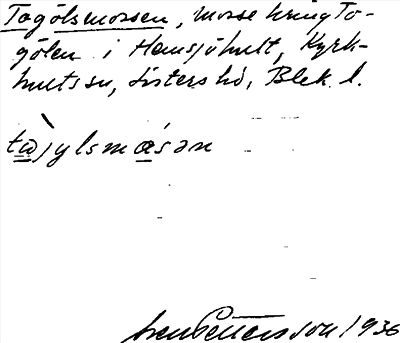 Tagölsmossen, mosse kring To-
gölen i Hemsjöhult, Kyrk-
hults sn, Listers hd, Blek. l.
tajylsmåsən
Sven Pettersson 1936